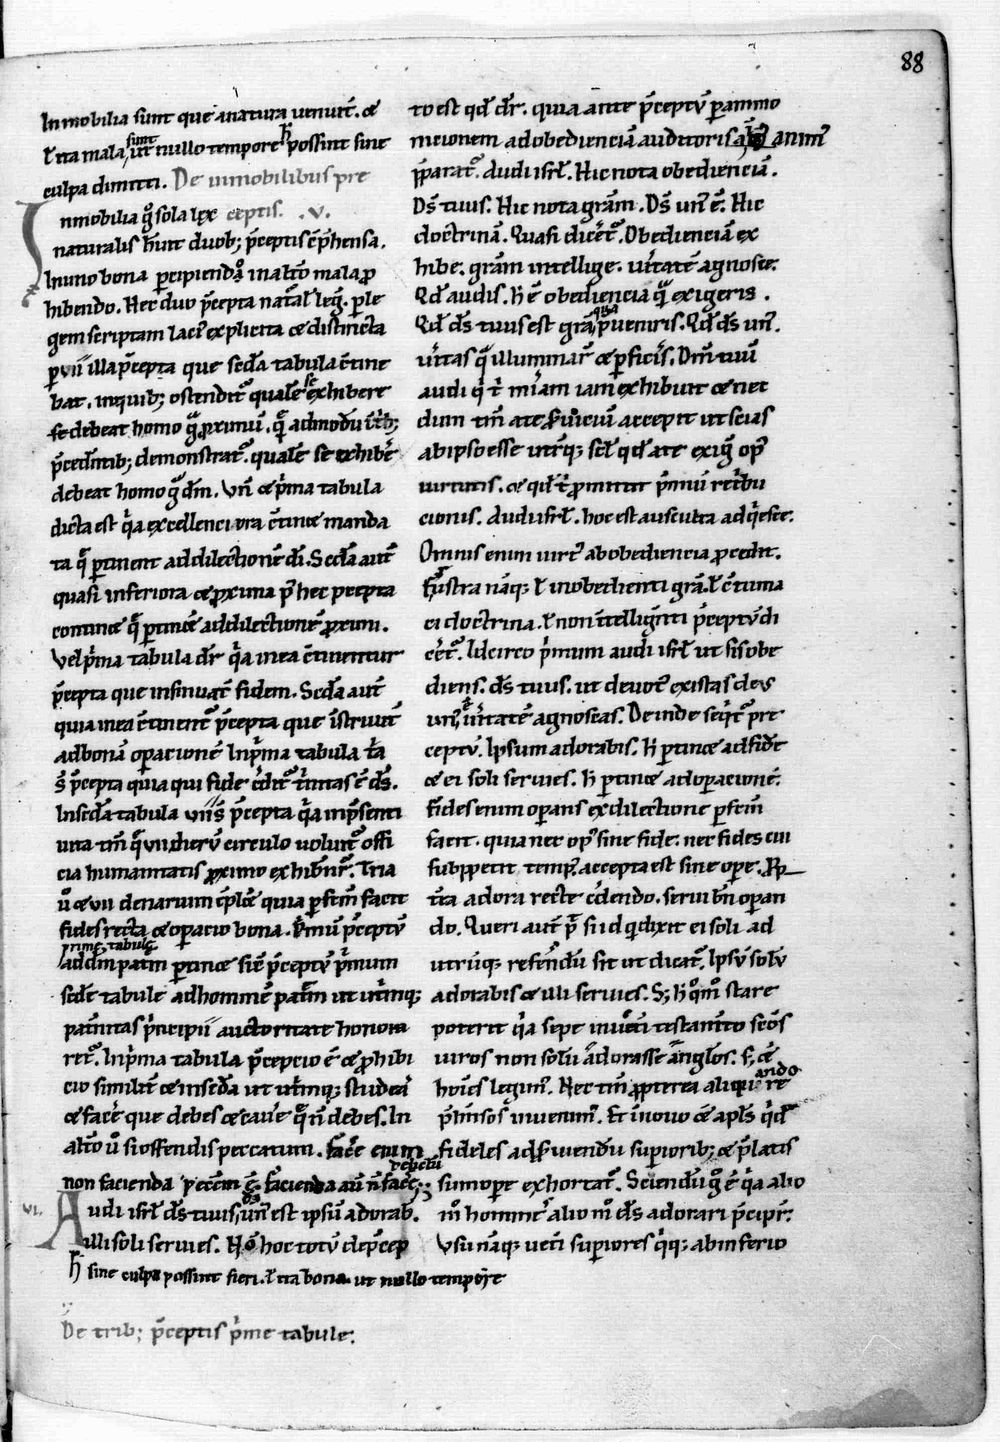 88
Inmobilia sunt que anatura ueniunt. ⁊
ł ita mala sunt ut nullo tempore possint sine
culpa dimitti. De inmobilibus pre
Inmobilia g̊ sola lex ceptis. .v.
naturalis hūit duob; p̄ceptis cp̄hensa.
In uno bona percipiendo. in alto mala ꝓ
hibendo. Hec duo p̄cepta nat̄al leḡ. ꝑ le
gem scriptam laci᷑ explicita ⁊ distincta
ꝑ vii illa p̄cepta que sed̄a tabula c̄tine
bat. in quib; ostendit᷑ qualē se exhibere
debeat homo g̊ ꝓximū. q̄ admodū trib;
p̄cedentib; demonstrat᷑. qualē se exhibē
debeat homo g̊ dm̄. Vn̄ ⁊ p̄ma tabula
dicta est q̄a excellenciora c̄tinet manda
ta q̄ ꝑtinent ad dilectionē dī. Sed̄a aut̄
quasi inferiora ⁊ ꝓxima p᷑ hec precepta
continet q̄ ꝑtinēt ad dilectionē ꝓximi.
Vel p̄ma tabula dr̄ q̄a in ea c̄tinentur
p̄cepta que insinuant fidem. Sed̄a aut̄
quia in ea c̄tinent᷑ p̄cepta que īstruūt
ad bonā operacionē. In p̄ma tabula t̄a
s̄ p̄cepta quia qui fide c̄dit᷑ t̄nitas ē dś.
In sed̄a tabula viis̄ p̄cepta q̄a in p̄senti
uita tm̄ q̄ vii dierū circulo uoluit᷑ offi
cia humanitatis ꝓximo exhibent᷑. Tria
ů ⁊ vii denarium cp̄lēt quia ꝑfectū facit
fides recta ⁊ operacio bona. P̄mū p̄ceptū
prime tabule
ad dm̄ patrem ꝑtinet sic̄ p̄ceptū p̄mum
sede tabule ad hominē patrem ut utrimq;
pat̄nitas p̄ncipii auctoritate honora
ret᷑. In p̄ma tabula p̄cepcio ē ⁊ ꝓhibi
cio similit̄ ⁊ in sed̄a ut utrimq; studeas
⁊ facere que debes ⁊ cauere q̄ n̄ debes. In
alt̄o ů si offendis peccatum. facere enim
non facienda peccm̄ ē. facienda aū n̄ facere
VI. Audi isrl̄ dś tuus unus est ipsū adorab.
⁊ illi soli seruies. No hoc totū de p̄cep
h̄ sine culpa possint fieri. ł ita bona ut nullo tempore
De trib; p̄ceptis p̄me tabule.
to est qd̄ dr̄. quia ante p̄ceptū ꝑ ammo
nicionem ad obedienciā auditoris animū
p̄parat᷑. dicēs audi isrl̄. Hic nota obedienciā.
Dś tuus. Hic nota gr̄am. Dś un᷑ ē. Hic
doctrinā. Quasi dicēt᷑. Obedienciā ex
hibe. gr̄am intellige. ueritatē agnosce.
Qd̄ audis. h̄ ē obediencia q̄ exigeris.
Qd̄ dś tuus est gr̄a qua p̄ueniris. Qd̄ dś un᷑.
ueritas q̄ illuminar᷑ ⁊ ꝑficer᷑. Dm̄ tuū
audi q̄ t̄ mīam iam exhibuit ⁊ nec
dum tm̄ a te seruiciū accepit ut scias
ab ipso esse utrūq; scil̄ qd̄ a te exiḡ op᷑
uirtutis. ⁊ qd̄ t̄ ꝓmittit p̄miū retribu
cionis. Audi isrl̄. hoc est ausculta ad q̄esce.
Omnis enim uirt᷑ ab obediencia ꝓcedit.
Frustra nāq; ł inobedienti gr̄a ł c̄tuma
ci doctrina. ł non intelligenti p̄ceptū di
cēt᷑. Idcirco p̄mum audi isrl̄ ut sis obe
diens. dś tuus. ut deuot᷑ existas deus
un᷑. ut ueritatē agnoscas. Deinde seq̄t᷑ pre
ceptū. Ipsum adorabis. h̄ ꝑtinet ad fidē
⁊ ei soli seruies. h̄ ꝑtinet ad operacionē.
Fides enim operans ex dilectione ꝑfectū
facit. quia nec op᷑ sine fide. nec fides cui
suppetit temp᷑. accepta est sine ope.
adora recte c̄dendo. serui bn̄ operan
do. Queri aut̄ p̄ si id qd̄ dixit ei soli ad
utrūq; referendū sit ut dicat᷑. Ipsū solū
adorabis ⁊ illi seruies. S; h̄ qm̊ stare
poterit q̄a sepe in ueteri testam̄to sc̄os
uiros non solū adorasse angl̄os. s; ⁊
hoīes legim᷑. Nec tm̄ ꝓpterea aliquando re
p̄hensos inuenim᷑. Et in nouo ⁊ apl̄s q̄dē
fideles ad seruiendū superiorib; ⁊ p̄latis
sum̄opere exhortat᷑. Sciendū g̊ ē q̄a alio
m̊ hominē alio m̊ dś adorari p̄cipit᷑.
Vsu nāq; uet̄i superiores q̄q; ab inferio